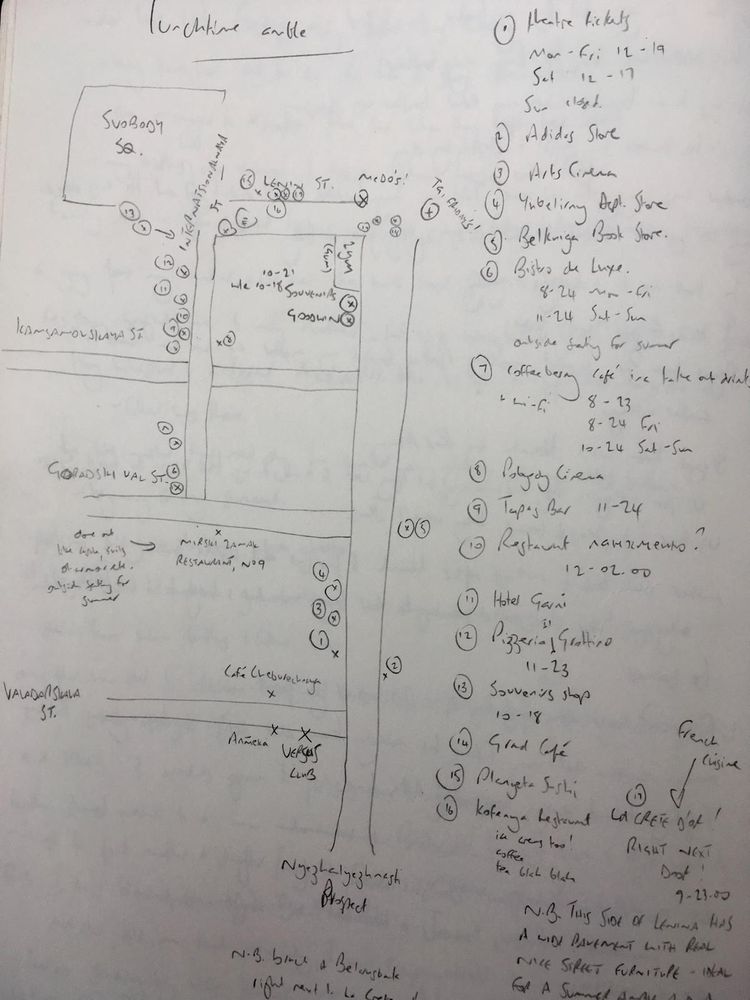 Lunchtime amble
SVOBODY
SQ.
INTERNATSIONALNAYA
ST
15 LENIN ST.
McDo's!
T.G.I. FRIDAYS!
16
13
12
11
10-21
w/e 10-18
SOUVENIRS
GOODWIN
8
ST.
7
6
GORADSKI VAL ST.
MIRSKI ZAMAK
RESTAURANT, NO 9
done out
like castle,
outside seating for
summer
5
4
3
1
2
Café Cheburechnaya
ST.
VERSUS
CLUB
Prospect
1 theatre tickets
Mon-Fri 12-19
Sat 12-17
Sun closed.
2 Adidas Store
3 Arts Cinema
4 Yubelirny Dept. Store
5 Belkniga Book Store.
6 Bistro de Luxe.
8-24 Mon-Fri
11-24 Sat-Sun
outside seating for summer
7 Coffeeberry café inc take out drinks
8-23
8-24 Fri
10-24 Sat-Sun
8 Cinema
9 Tapas Bar 11-24
10 Restaurant
12-02.00
11 Hotel Garni
12 Pizzeria Il Grottino
11-23
13 Souvenirs shop
10-18
14 Grad Café
15 Planyeta Sushi
16 Restaurant
ice creams too!
coffee
tea blah blah
French
Cuisine
17 LA CRETE D'OR!
RIGHT NEXT
Door!
9-23.00
N.B. THIS SIDE OF LENINA HAS
A WIDE PAVEMENT WITH REAL
NICE STREET FURNITURE - IDEAL
FOR A SUMMER
N.B. branch of Belarusbank
right next to La Crete d